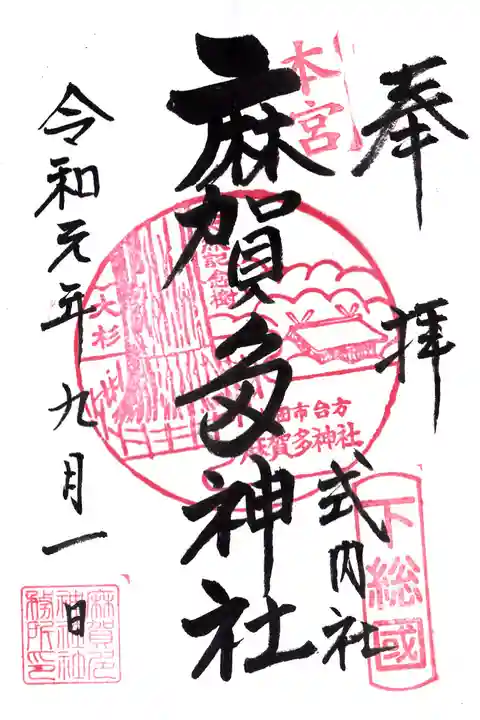 奉拝
下総國
式内社
本宮
麻賀多神社
記念樹
大杉
田市台方
麻賀多神社
令和元年九月一日
麻賀多
神社社
務所印